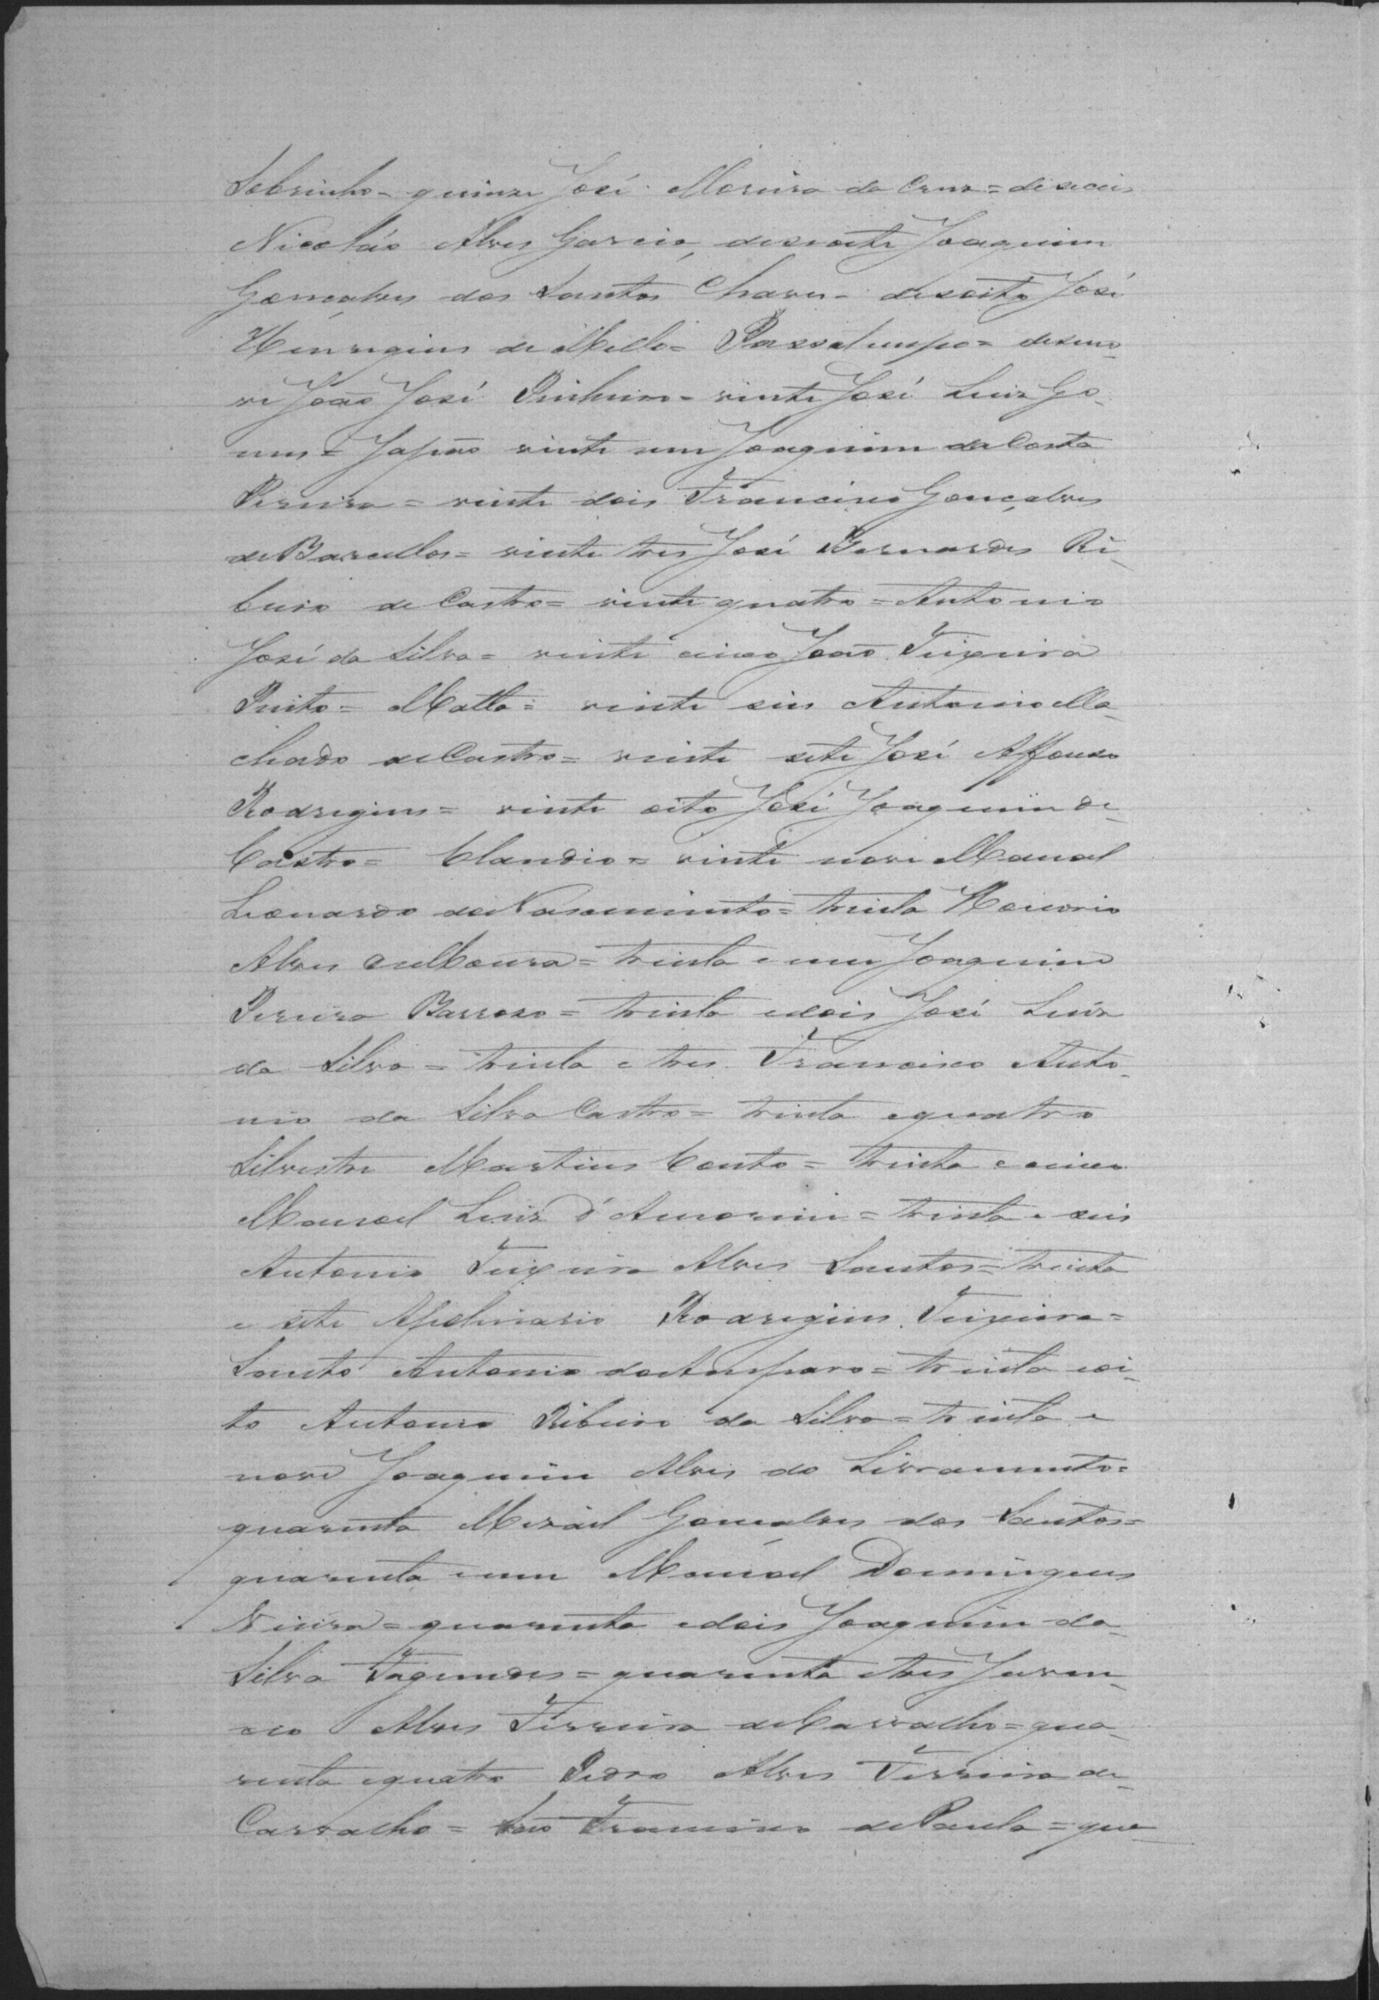 Sobrinho- quinze José Moreira da Cruz= deseceis
Nicoláo Alves Garcia, desesete Joaquim
Gonçalves dos Santos Chaves- desoito José
Henrigues de Mello= Passatempo= deseno-
ve João José Pinheiro- vinte José Luiz Go-
mes= Japão vinte um Joaquim da Costa
Pereira= vinte dois Francisco Gonçalves
de Barcellos= vinte tres José Bernardes Ri-
beiro de Castro= vinte quatro= Antonio
José da Silva= vinte cinco João Teixeira
Pinto= Matta= vinte seis Antonio Ma-
chado de Castro= vinte sete José Affonso
Rodrigues= vinte oito José Joaquim de
Castro= Claudio= vinte nove Manoel
Leonardo do Nascimento= trinta Honorio
Alves de Moura= trinta e um Joaquim
Pereira Barroso= trinta e dois José Luiz
da Silva= trinta e tres Francisco Anto-
nio da Silva Castro= trinta e quatro
Silvestre Martins Couto= trinta e cinco
Manoel Luiz d'Amorim= trinta e seis
Antonio Teixeira Alves Santos= trinta
e sete Apolinario Rodrigues Teixeira=
Santo Antonio do Amparo= trinta e oi-
to Antonio Ribeiro da Silva= trinta e
nove Joaquim Alves do Livramento=
quarenta Misael Gonçalves dos Santos=
quarenta e um Manoel Domingues
Vieira= quarenta e dois Joaquim da
Silva Fagundes= quarenta e tres Juven-
cio Alves Ferreira de Carvalho= qua-
renta e quatro Pedro Alves Ferreira de
Carvalho= São Francisco de Paula= qua-